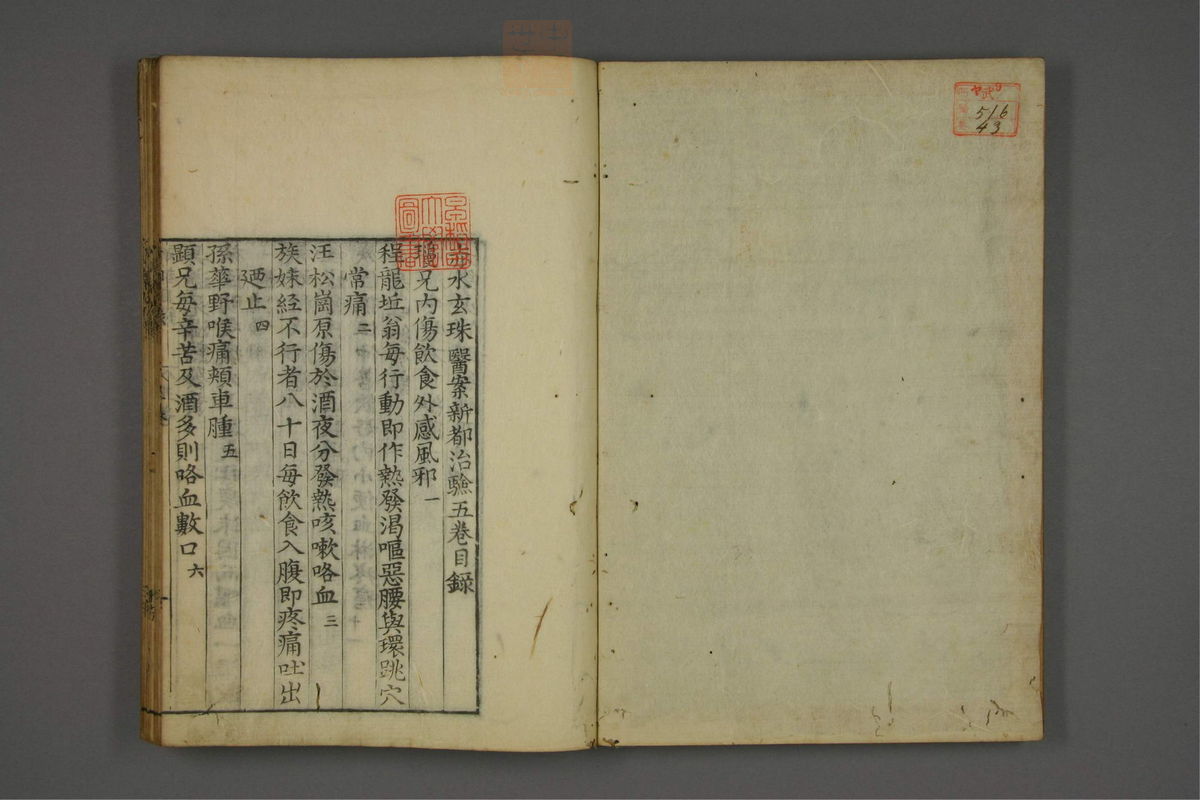 赤水玄珠醫案新都治驗五卷目錄
兄內傷飲食外感風邪 一
程龍丘翁每行動即作熱發渴嘔惡腰與環跳穴
常痛 二
汪松崗原傷於酒夜分發熱咳嗽咯血 三
族妹經不行者八十日每飲食入腹即疼痛吐出
迺止 四
孫華野喉痛頰車腫 五
顕兄每辛苦及酒多則咯血數口 六
武
516
43